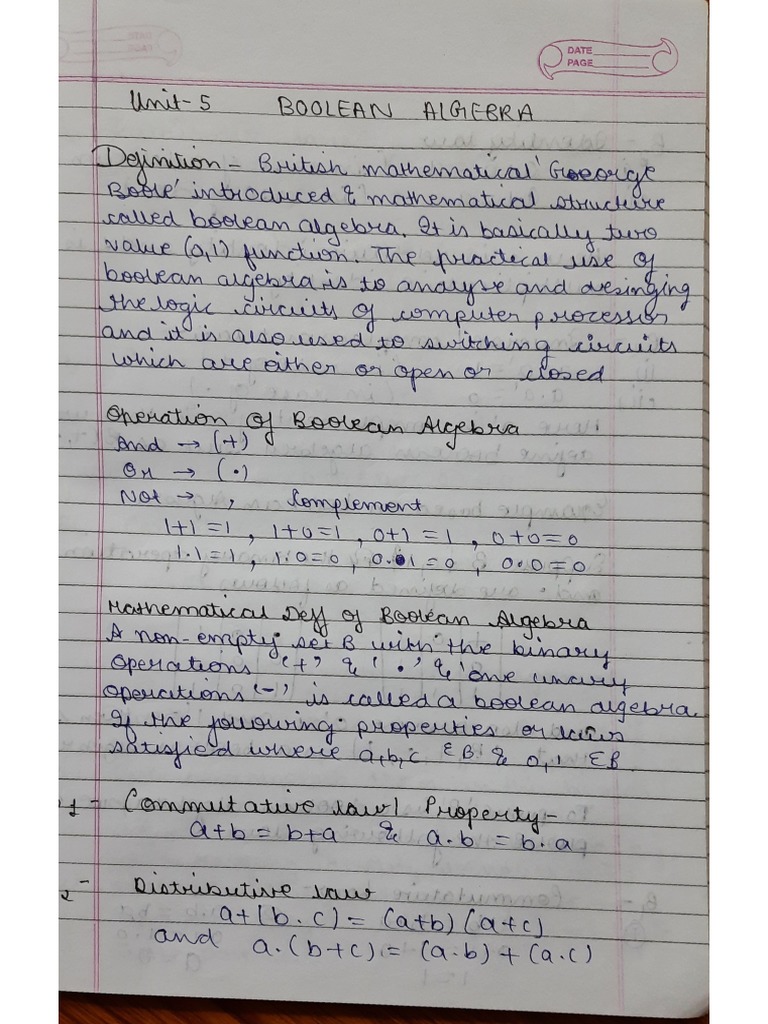 DATE
PAGE
Unit-5 BOOLEAN ALGEBRA
Definition - British mathematical 'Goeorge
Boole' introduced & mathematical structure
called boolean algebra. It is basically two
value (0,1) function. The practical use of
boolean algebra is to analyse and desinging
the logic circuits of computer processor
and it is also used to switching circuits
which are either or open or closed
Operation of Boolean Algebra
And → (+)
Or → (•)
Not → , Complement
1+1=1, 1+0=1, 0+1=1, 0+0=0
1.1=1, 1.0=0, 0.1=0, 0.0=0
Mathematical Deff of Boolean Algebra
A non-empty set B with the binary
operations '+' & '•' & one unary
operations '-' is called a boolean algebra.
If the following properties or laws
satisfied where a,b,c ∈B & 0,1 ∈B
1- Commutative law| Property:-
a+b = b+a & a.b = b.a
2- Distributive law
a+(b.c) = (a+b) (a+c)
and a.(b+c) = (a.b) + (a.c)